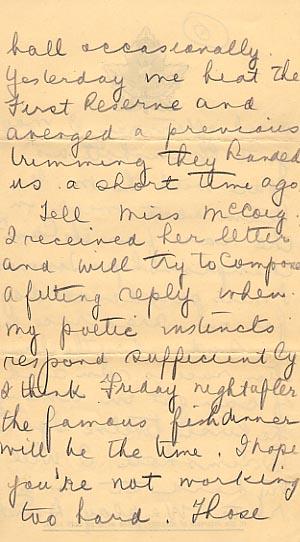 ball occasionally.
Yesterday we beat the
First Reserve and
avenged a previous
trimming they handed
us a short time ago
Tell Miss McCoig
I received her letter
and will try to compose
a fitting reply when
my poetic instincts
respond sufficiently
I think Friday night after
the famous fish dinner
will be the time. I hope
you're not working
too hard. Those